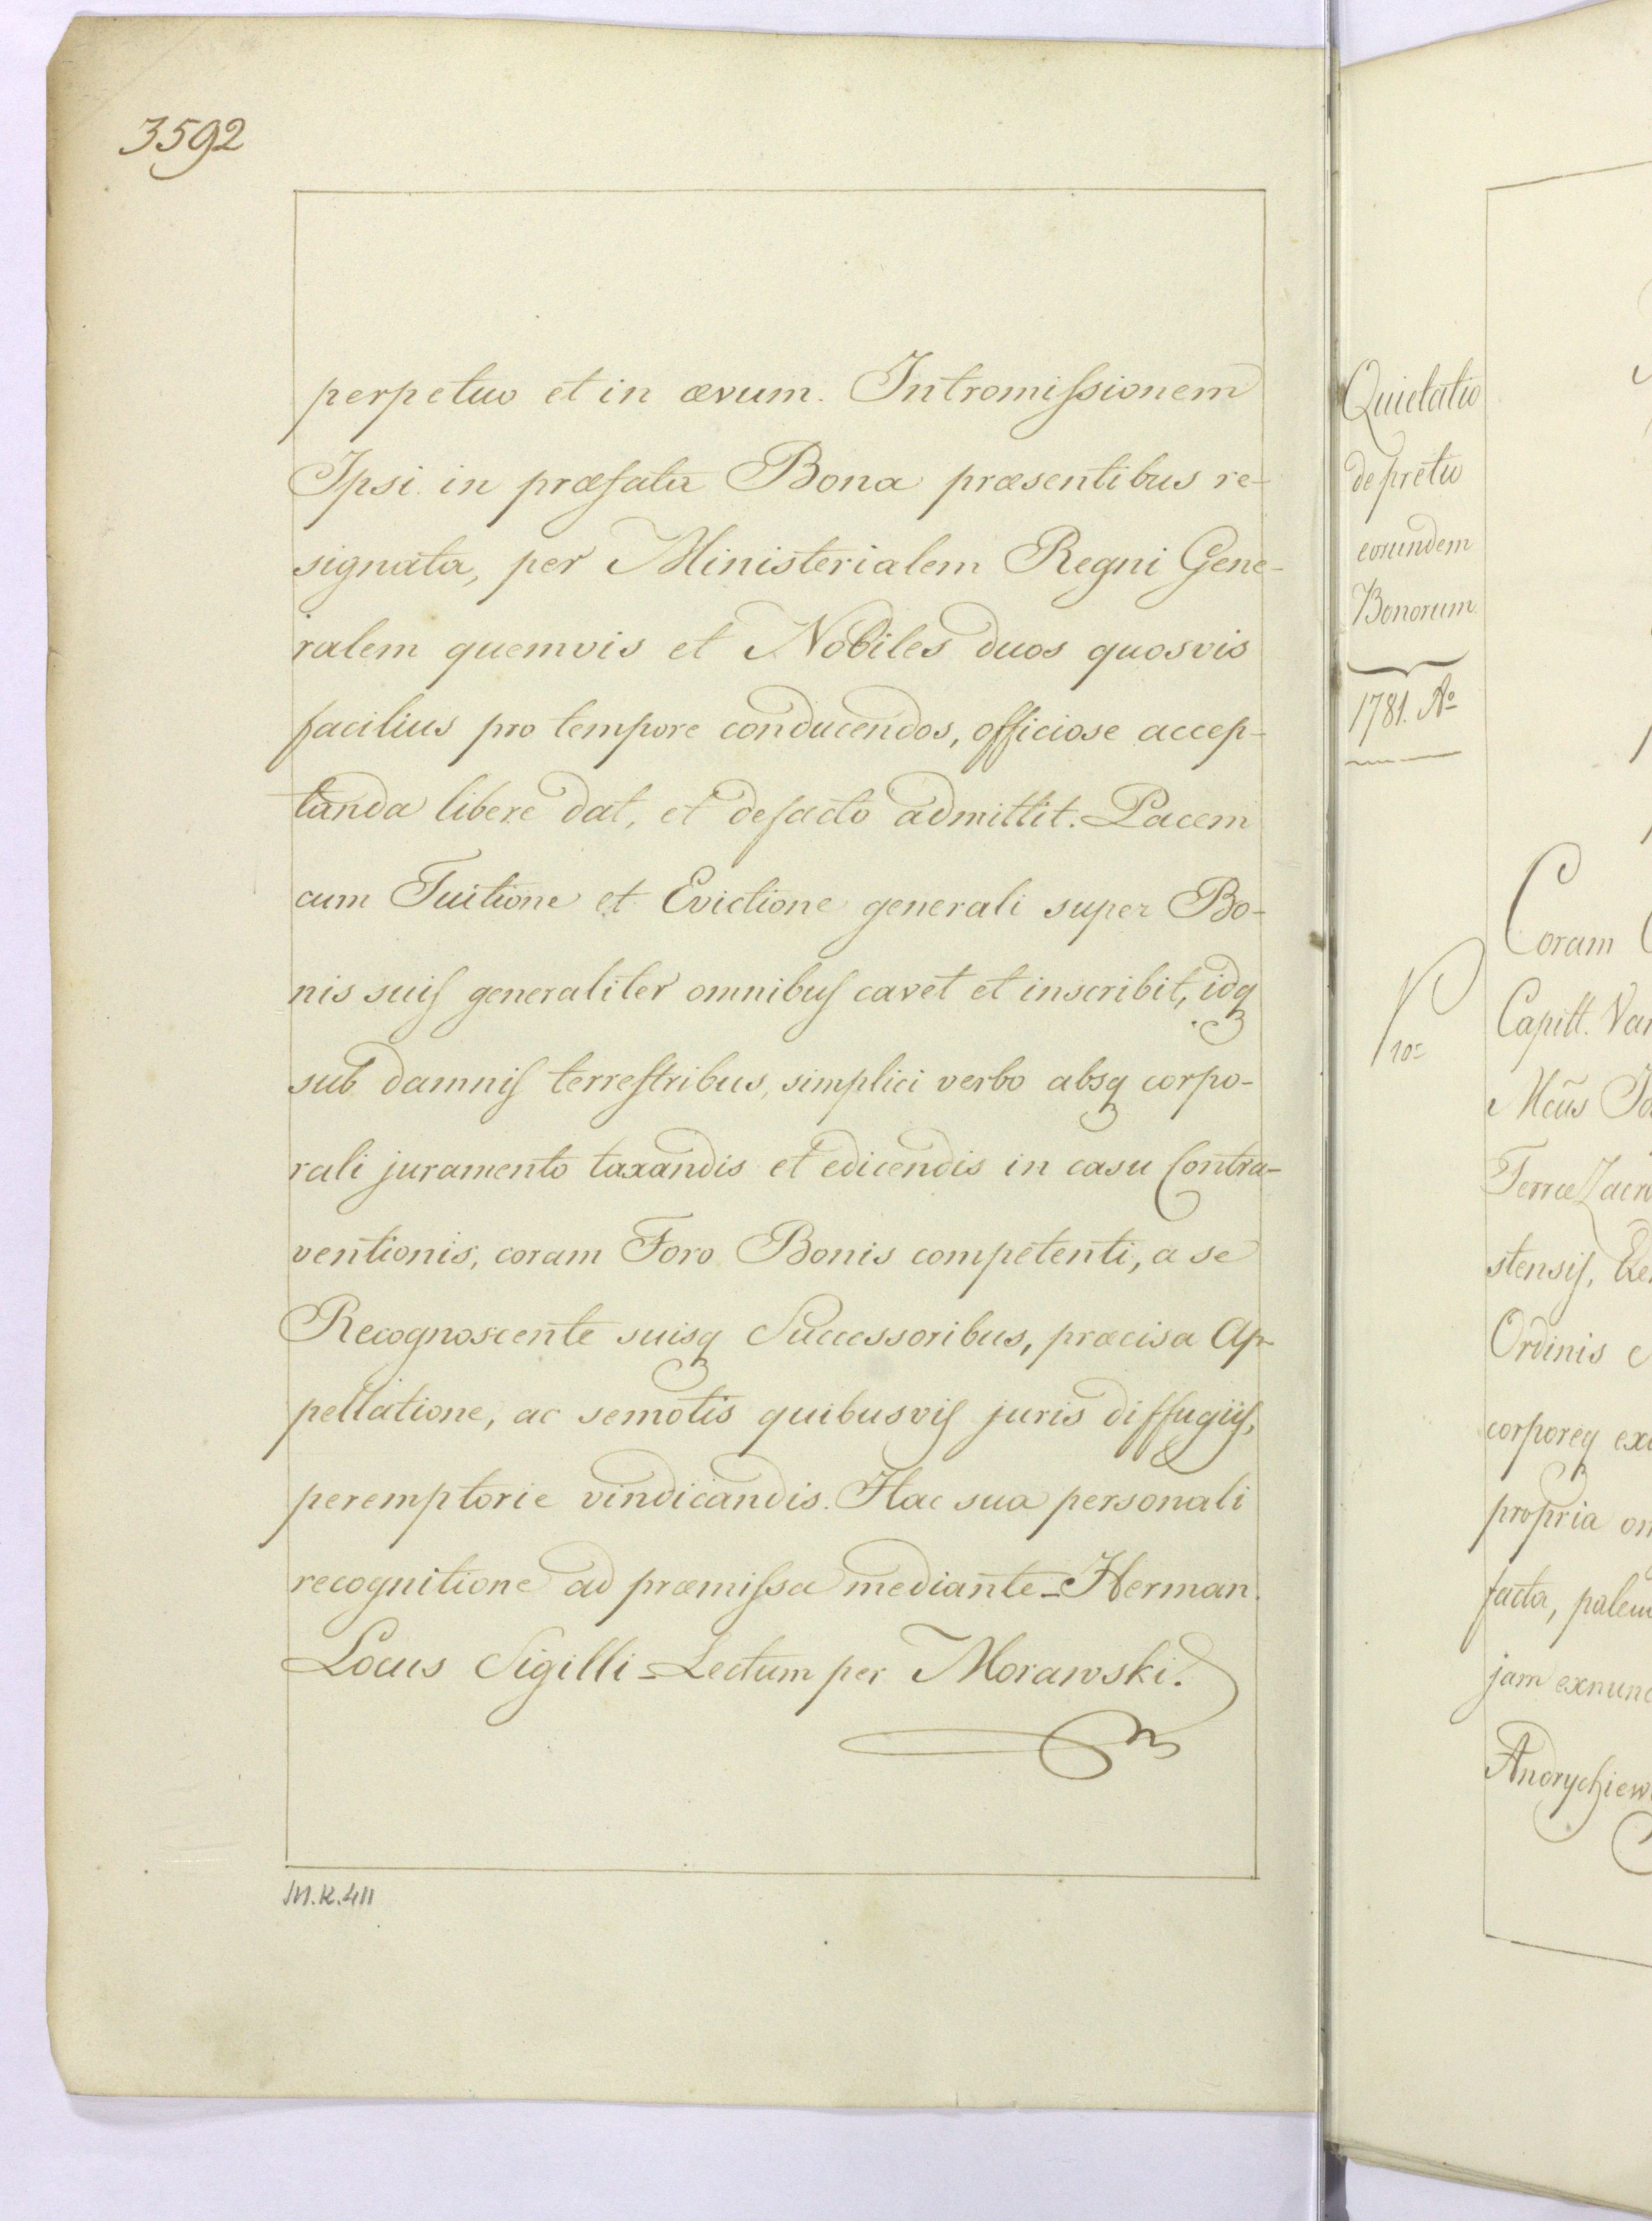 3592
perpetuo et in ævum. Intromiſsionem
Ipsi in præfata Bona præsentibus re-
signata, per Ministerialem Regni Gene-
ralem quemvis et Nobiles duos quosvis
facilius pro tempore conducendos, officiose accep-
tanda libere dat, et defacto admittit. Pacem
cum Tuitione et Evictione generali super Bo-
nis suiſ generaliter omnibuſ cavet et inscribit, idqꝫ
sub damniſ terreſtribus, simplici verbo absqꝫ corpo-
rali juramento taxandis et edicendis in casu Contra-
ventionis, coram Foro Bonis competenti, a se
Recognoscente suisqꝫ Successoribus, præcisa Ap-
pellatione, ac semotis quibusviſ juris diffugijſ,
peremptorie vindicandis. Hac sua personali
recognitione ad præmiſsa mediante_Herman.
Locus Sigilli_Lectum per Morawski.
M.K.411
Quietatio
de pretio
eorundem
Bonorum.
1781. Aº
Coram
Capitt. Var
Mcũs Jo
Terræ Zacro
stensiſ,
Ordinis
corporeqꝫ ex
propria om
facta, palem
jam exnunc
Andrychiew